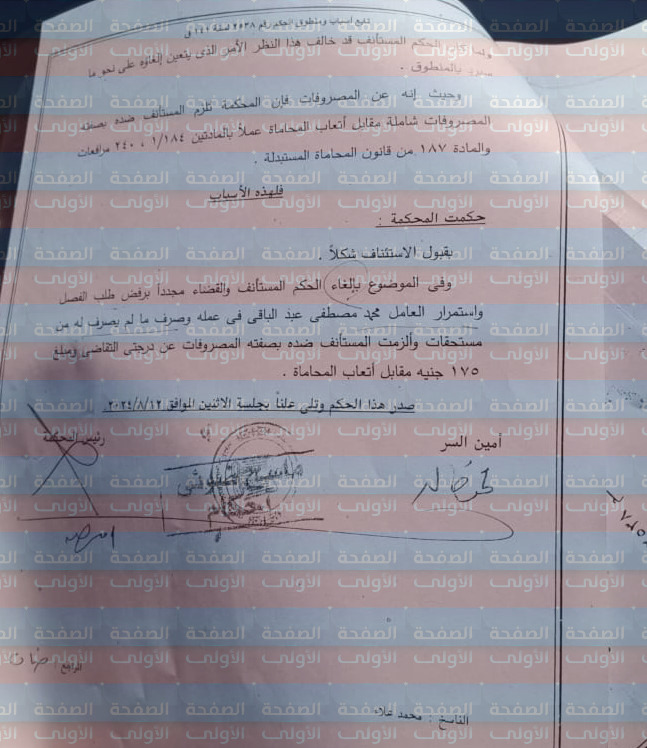 تابع أسباب ومنطوق الحكم رقم ٢٥٣٨ لسنة ١٤١ ق
ولما كان الحكم المستأنف قد خالف هذا النظر الأمر الذى يتعين إلغاؤه على نحو ما
سيرد بالمنطوق .
وحيث إنه عن المصروفات فإن المحكمة تلزم المستأنف ضده بصفته
المصروفات شاملة مقابل أتعاب المحاماة عملاً بالمادتين ١/١٨٤ ، ٢٤٠ مرافعات
والمادة ١٨٧ من قانون المحاماة المستبدلة .
فلهذه الأسباب
حكمت المحكمة :
بقبول الاستئناف شكلاً .
وفى الموضوع بإلغاء الحكم المستأنف والقضاء مجدداً برفض طلب الفصل
واستمرار العامل محمد مصطفى عبد الباقى فى عمله وصرف ما لم يصرف له من
مستحقات وألزمت المستأنف ضده بصفته المصروفات عن درجتى التقاضى ومبلغ
١٧٥ جنيه مقابل أتعاب المحاماة .
صدر هذا الحكم وتلى علناً بجلسة الاثنين الموافق ٢٠٢٤/٨/١٢
أمين السر
رئيس المحكمة
الناسخ : محمد علاء
المراجع :
الصفحة الأولى